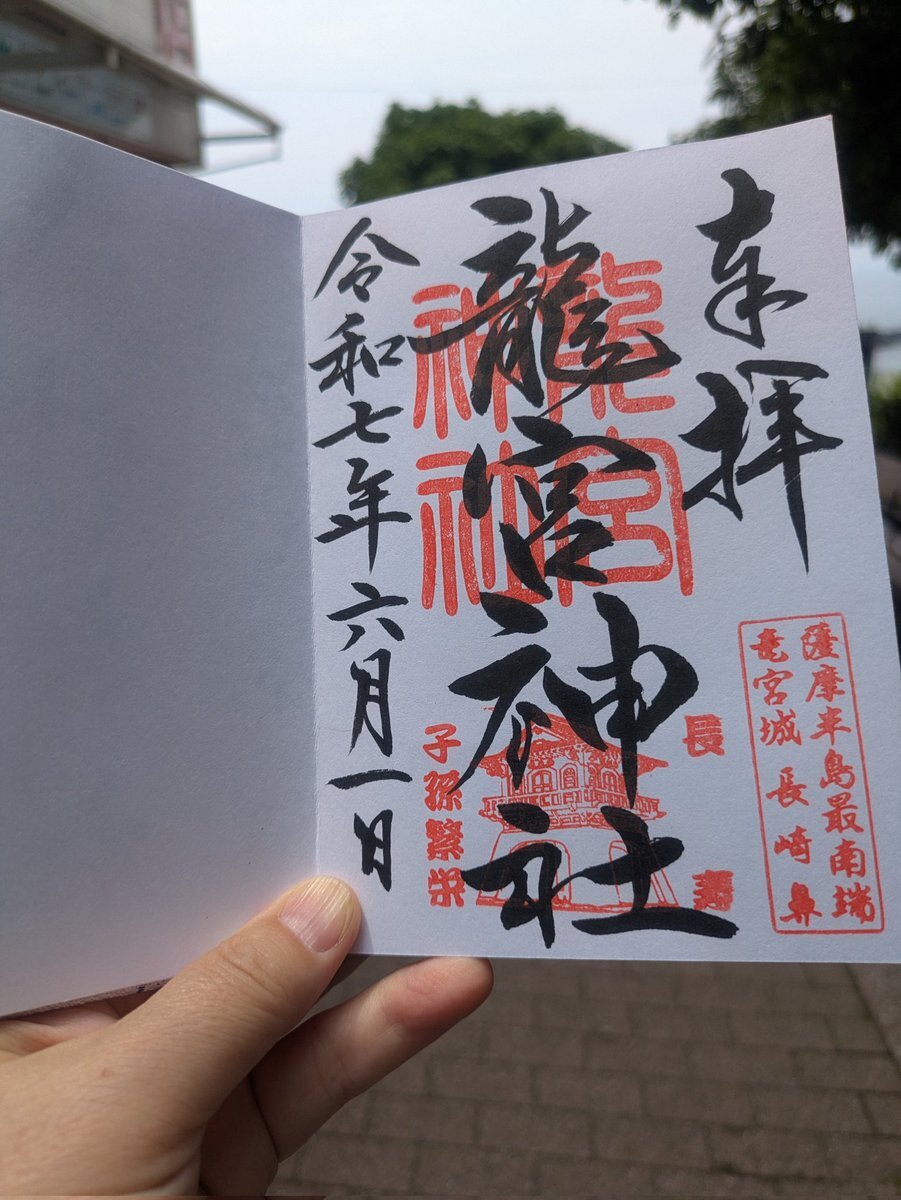 奉拝
薩摩半島最南端
竜宮城 長崎鼻
龍宮神社
龍宮
神社
長壽
子孫繁栄
令和七年六月一日